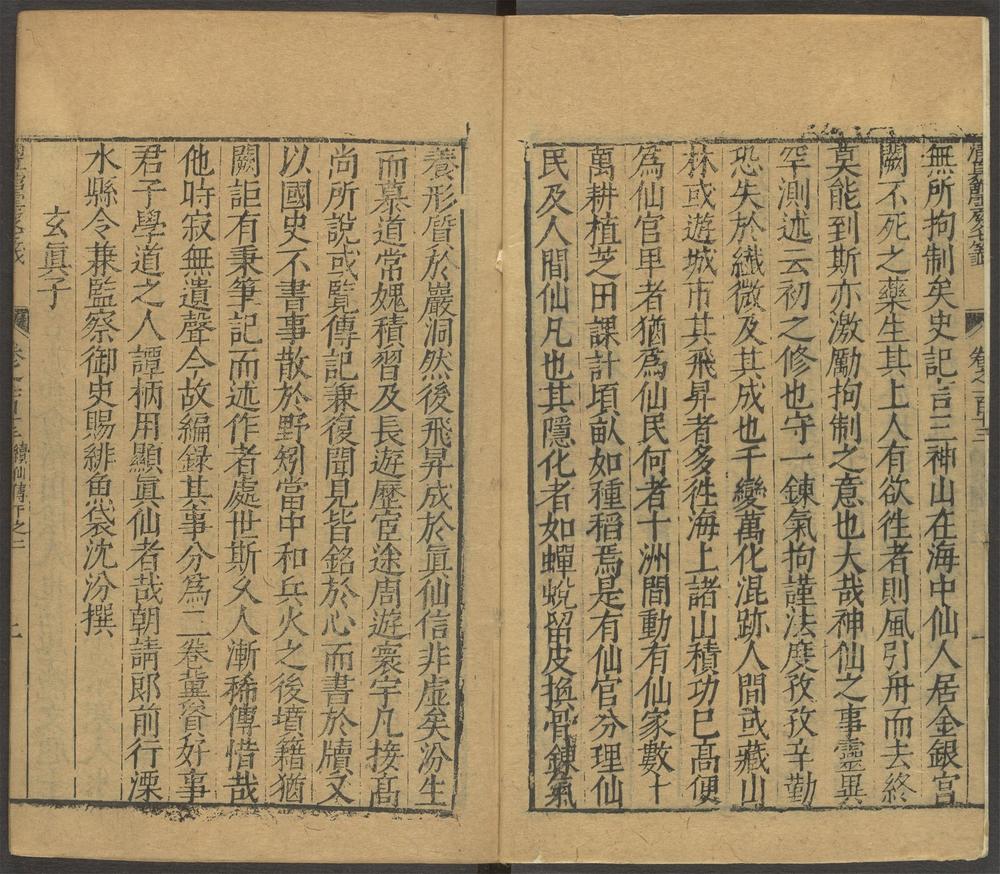 卷之一百十三
無所拘制矣史記言三神山在海中仙人居金銀宮
闕不死之藥生其上人有欲徃者則風引舟而去終
莫能到斯亦激勵拘制之意也大哉神仙之事靈異
罕測述云初之修也守一鍊氣拘謹法度孜孜辛勤
恐失於纖微及其成也千變萬化混跡人間或藏山
林或遊城市其飛昇者多徃海上諸山積功巳高便
爲仙官卑者猶爲仙民何者十洲間動有仙家數十
萬耕植芝田課計頃畝如種稻焉是有仙官分理仙
民及人間仙凡也其隱化者如蟬蛻留皮換骨鍊氣
養形質於巖洞然後飛昇成於眞仙信非虛矣汾生
而慕道常媿積習及長遊歷宦途周遊寰宇凡接高
尚所說或覽傳記兼復聞見皆銘於心而書於牘又
以國史不書事散於野矧當中和兵火之後墳籍猶
闕詎有秉筆記而述作者處世斯久人漸稀傳惜哉
他時寂無遺聲今故編錄其事分爲二卷冀資好事
君子學道之人譚柄用顯眞仙者哉朝請郎前行溧
水縣令兼監察御史賜緋魚袋沈汾撰
玄眞子
卷之一百十三 續仙傳下之二